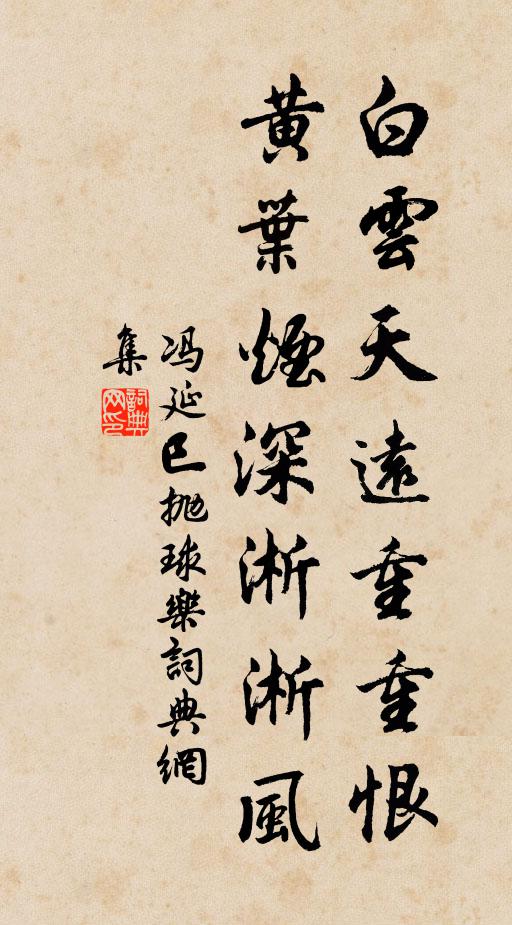 白雲天遠重重恨
黃葉煙深淅淅風
冯延巳抛球樂詞典網
集
詞典
网印